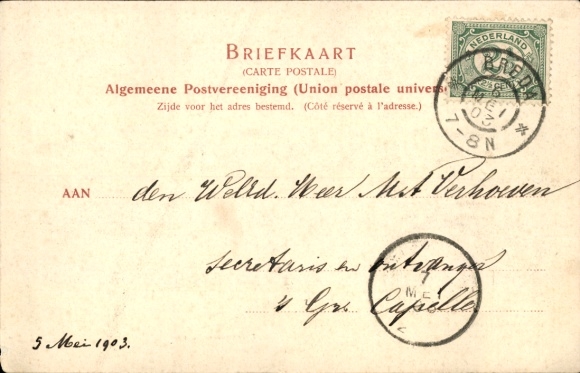 BRIEFKAART
(CARTE POSTALE)
Algemeene Postvereeniging (Union postale univers
Zijde voor het adres bestemd. (Côté réservé à l'adresse.)
NEDERLAND
BREDA
6
MEI
03
7-8N
AAN den Weled. Heer M.A. Verhoeven
secretaris en ontvanger
7
MEI
s Gr. Capelle
5 Mei 1903.